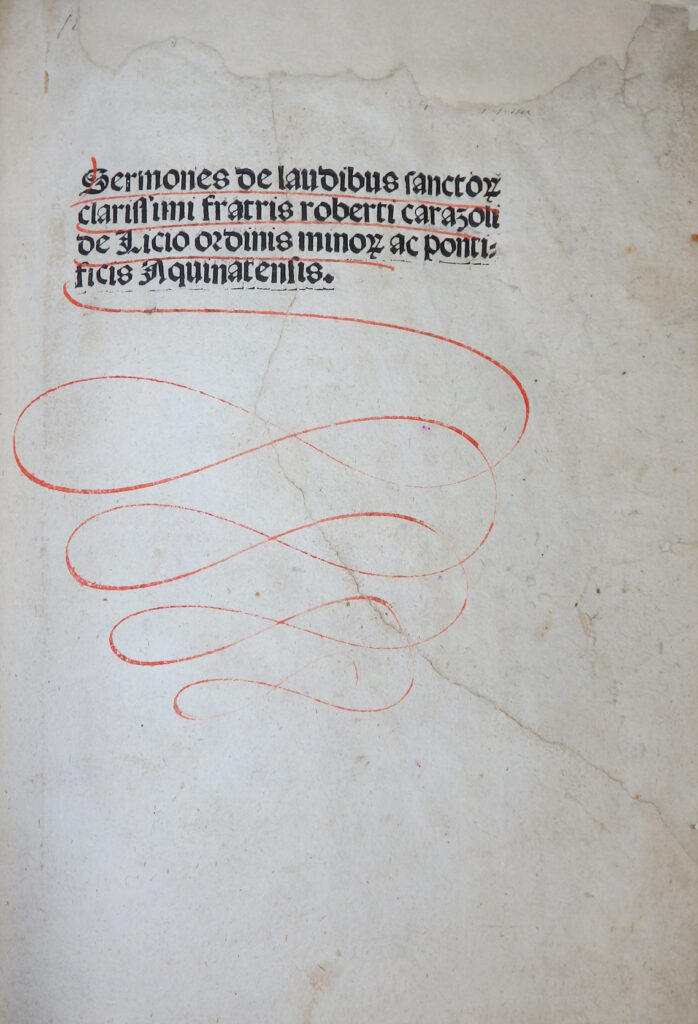 Sermones de laudibus sanctoꝝ
clarissimi fratris roberti carazoli
de Licio ordinis minoꝝ ac ponti⸗
ficis Aquinatensis.